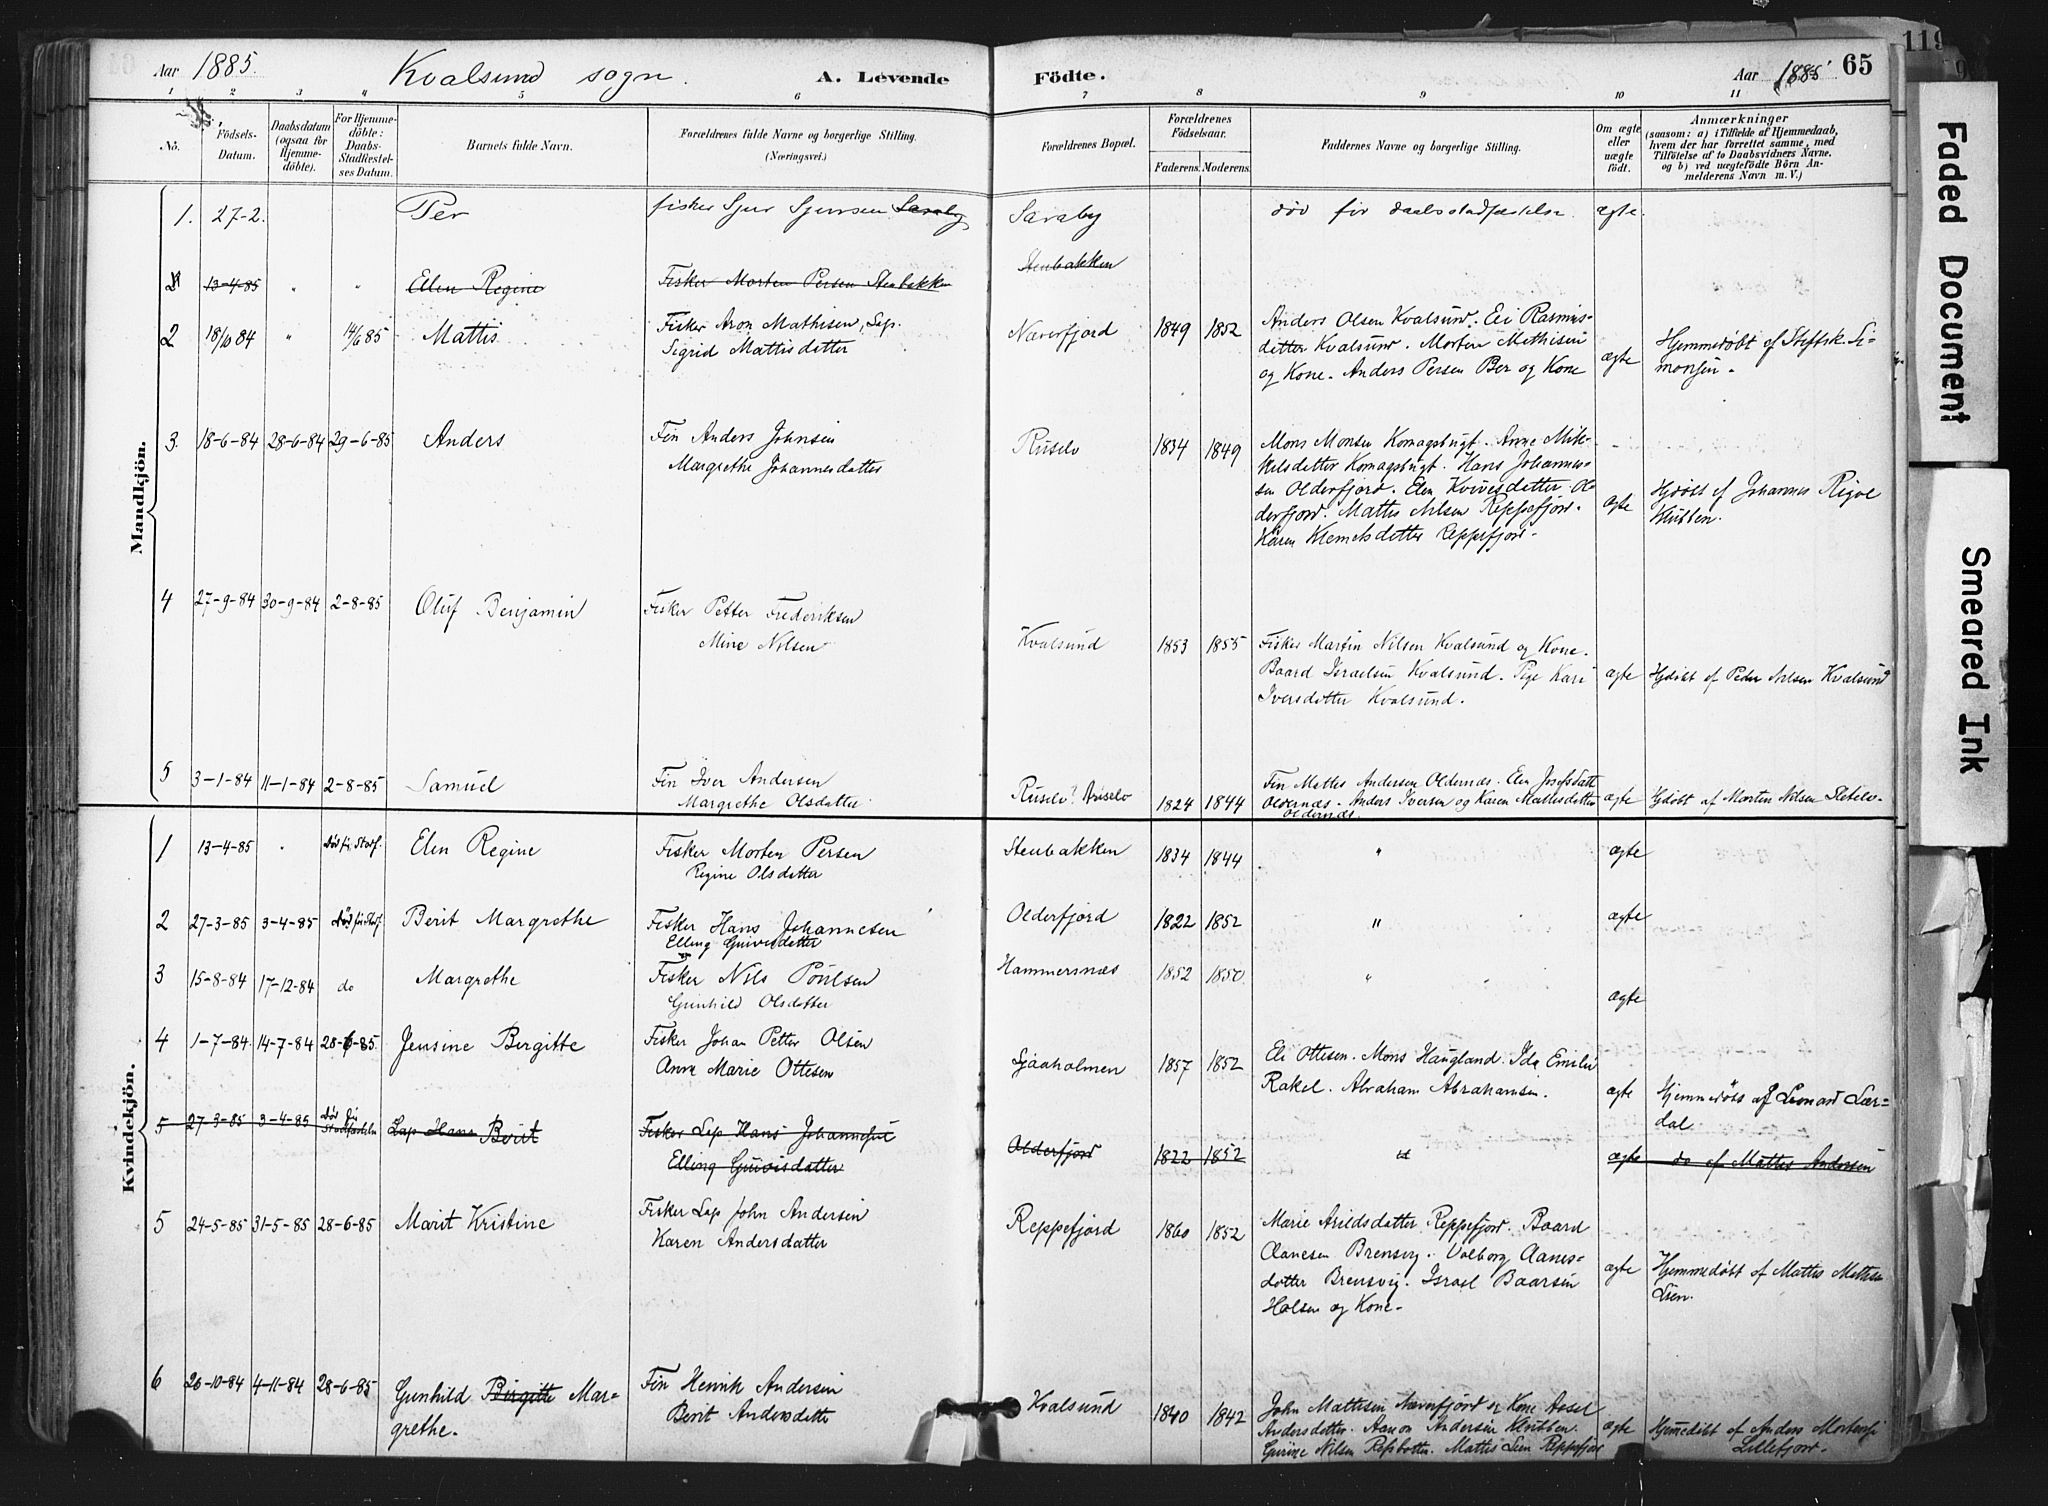 Aar 1885. Kvalsund sogn. A. Levende Födte. Aar 1885. 65
119
1 2 3 " 5 6 7 8 9 10 11
No.
Födsels-
Datum.
Daabsdatum
(ogsaa for
Hjemme-
döbte).
For Hjemme-
döbte:
Daabs-
Stadfæstel-
ses Datum.
Barnets fulde Navn.
Forældrenes fulde Navne og borgerlige Stilling.
(Næringsvei.)
Forældrenes Bopæl.
Forældrenes
Födselsaar.
Faderens. Moderens.
Faddernes Navne og borgerlige Stilling.
Om ægte
eller
uægte
födt.
Anmærkninger
(saasom: a) i Tilfælde af Hjemmedaab,
hvem der har forrettet samme, med
Tilföielse af to Daabsvidners Navne.
og b) ved uægtefödte Börn An-
melderens Navn m. V.)
Mandkjön.
1. 27-2. Per fisker Sjur Sjursen Saraby Saraby død før daabsstadfæstelse. ægte.
2 13-4-85 " " Elen Regine Fisker Morten Persen Stenbakken Stenbakken
2 18/10 84 " 14/6 85 Mattis Fisker Aron Mathisen, Lap.
Sigrid Mattisdatter
Næverfjord 1849 1852 Anders Olsen Kvalsund. Eli Rasmus-
datter Kvalsund. Morten Mathisen
og Kone. Anders Persen Ber og Kone
ægte Hjemmedøbt af Steffsk. Si-
monsen.
3. 18-6-84 28-6-84 29-6-85 Anders Fin Anders Johnsen
Margrethe Johannesdatter
Ruselv 1834 1849 Mons Monsen Komagsbugt. Anne Mik-
kelsdatter Komagsbugt. Hans Johannes-
sen Olderfjord. Elen Kvivesdatter Ol-
derfjord. Mattis Nilsen Reppefjord.
Karen Klemetsdatter Reppefjord.
ægte Hjdøbt af Johannes Rigve
Klubben.
4 27-9-84 30-9-84 2-8-85 Oluf Benjamin Fisker Petter Frederiksen
Mine Nilsen
Kvalsund 1853 1855 Fisker Martin Nilsen Kvalsund og Kone.
Baard Israelsen Kvalsund. Pige Kari
Iversdatter Kvalsund.
ægte Hjdøbt af Peder Nilsen Kvalsund
5 3-1-84 11-1-84 2-8-85 Samuel Fin Iver Andersen
Margrethe Olsdatter
Ruselv? Ariselv 1824 1844 Fin Mattis Andersen Oldernæs. Elen Josefsdatt
Oldernæs. Anders Iversen og Karen Mattisdatter
Oldernæs.
ægte Hjdøbt af Morten Nilsen Sletelv.
Kvindekjön.
1 13-4-85 " Død før Stadf. Elen Regine Fisker Morten Persen
Regine Olsdatter
Stenbakken 1834 1844 " ægte
2 27-3-85 3-4-85 Død før Stadf. Berit Margrethe Fisker Hans Johannesen
Elling Guivisdatter
Olderfjord 1822 1852 " ægte
3 15-8-84 17-12-84 do Margrethe Fisker Nils Poulsen
Gunhild Olsdatter
Hammersnæs 1852 1850 " ægte
4 1-7-84. 14-7-84 28-6-85. Jensine Birgitte Fisker Johan Petter Olsen
Anne Marie Ottesen
Sjaaholmen 1857 1852 Eli Ottesen. Mons Haugland. Ida Emilie
Rakel. Abraham Abrahamsen.
ægte Hjemmedøbt af Leonard Lær-
dal.
5 27-3-85 3-4-85 Død før
Stadfæstelse
Lap Hans Berit Fisker Lap Hans Johannesen
Elling Guivisdatter
Olderfjord 1822 1852 " ægte do af Mattis Andersen
5 24-5-85 31-5-85 28-6-85 Marit Kristine Fisker Lap John Andersen
Karen Andersdatter
Reppefjord 1860 1852 Marie Arildsdatter Reppefjord. Baard
Aanesen Brensvig. Valborg Aanes-
datter Brensvig. Israel Baarsen
Halsen og Kone.
ægte Hjemmedøbt af Mattis Mathisen
Lien.
6 26-10-84 4-11-84 28-6-85 Gunhild Birgitte Mar-
grethe.
Fin Henrik Andersen
Berit Andersdatter
Kvalsund 1840 1842 John Mathisen Næverfjord og Kone Assel
Andersdatter. Aaron Andersen Klubben.
Gurine Nilsen Repbotten. Mattis Lien Reppefjor
ægte Hjemedøbt af Anders Mortensen
Lillefjord.
Faded Document
Smeared Ink